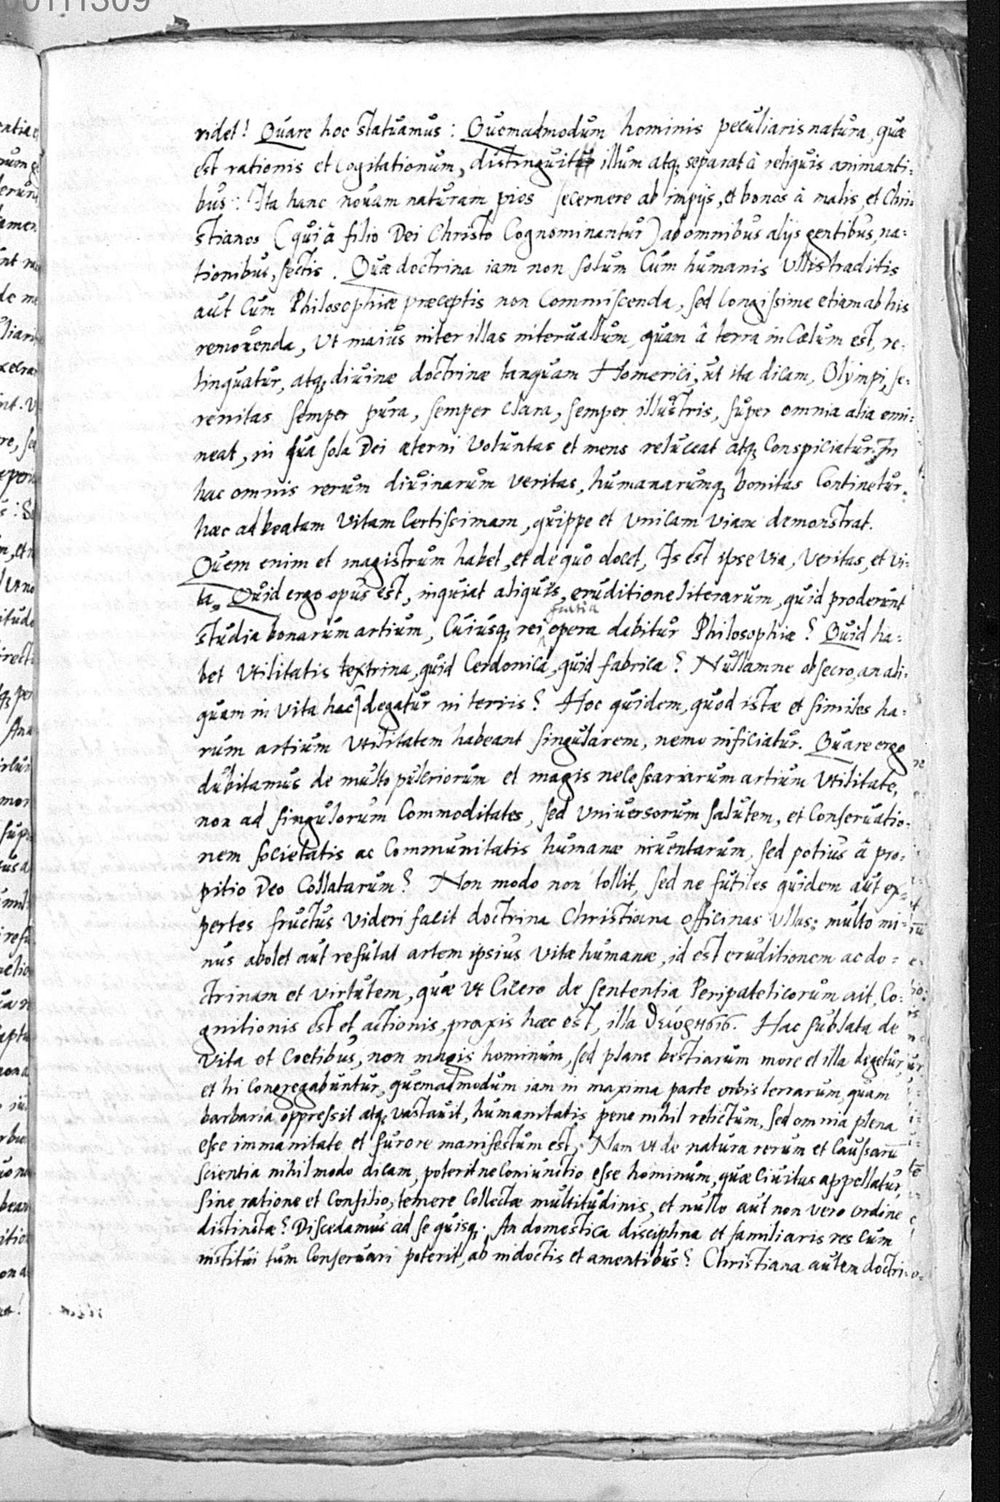 00111309
ridet! Quare hoc statuamus: Quemadmodum hominis peculiaris natura, quæ
est rationis et cogitationum, distinguit illum atq; separat à reliquis animanti-
bus: Ita hanc novam naturam pios secernere ab impijs, et bonos à malis, et Chri-
stianos (qui à filio Dei Christo cognominantur) ab omnibus alijs gentibus, na-
tionibus, sectis. Quæ doctrina iam non solum cum humanis ullis traditis
aut cum Philosophiæ præceptis non commiscenda, sed longissime etiam ab his
removenda, ut maius inter illas intervallum, quam à terra in Cælum est, re-
linquatur, atq; divinæ doctrinæ tanquam Homerici, ut ita dicam, Olympi, se-
renitas semper pura, semper clara, semper illustris, super omnia alia emi-
neat, in qua sola Dei æterni voluntas et mens reluceat atq; conspiciatur. In
hac omnis rerum divinarum veritas, humanarumq; bonitas continetur,
hæc ad beatam vitam certissimam, quippe et unicam viam demonstrat.
Quem enim et magistrum habet, et de quo docet, Is est ipse via, veritas, et vi-
ta. Quid ergo opus est, inquiat aliquis, eruditione literarum, quid proderunt
studia bonarum artium, cuiusq; rei opera dabitur Philosophiæ? Quid ha-
bet utilitatis textrina, quid cerdonica, quid fabrica? Nullamne obsecro, an ali-
quam in vita hac degatur in terris? Hoc quidem, quod istæ et similes ha-
rum artium utilitatem habeant singularem, nemo inficiatur. Quare ergo
dubitamus de multo pulcriorum et magis necessariarum artium utilitate,
non ad singulorum commoditates, sed universorum salutem, et conservatio-
nem societatis ac communitatis humanæ inventarum, sed potius à pro-
pitio Deo collatarum? Non modo non tollit, sed ne futiles quidem aut ex-
pertes fructus videri facit doctrina Christiana officinas ullas: multo mi-
nus abolet aut refutat artem ipsius vitæ humanæ, id est eruditionem ac do-
ctrinam et virtutem, quæ ut Cicero de sententia Peripateticorum ait, Co-
gnitionis est et actionis, praxis hæc est, illa θεώρησις. Hac sublata de
vita et coetibus, non magis hominum, sed plane bestiarum more et illa degetur
et hi congregabuntur, quemadmodum iam in maxima parte orbis terrarum, quam
barbaria oppressit atq; vastavit, humanitatis pene nihil relictum, sed omnia plena
esse immanitate et furore manifestum est. Nam ut de natura rerum et caussarũ
scientia nihil modo dicam, poteritne coniunctio esse hominum, quæ civitas appellatur
sine ratione et consilio, temere collectæ multitudinis, et nullo aut non vero ordine
distinctæ? Discedamus ad se quisq;. An domestica disciplina et familiaris res cum
institui tum conservari poterit, ab indoctis et amentibus? Christiana autem doctri-